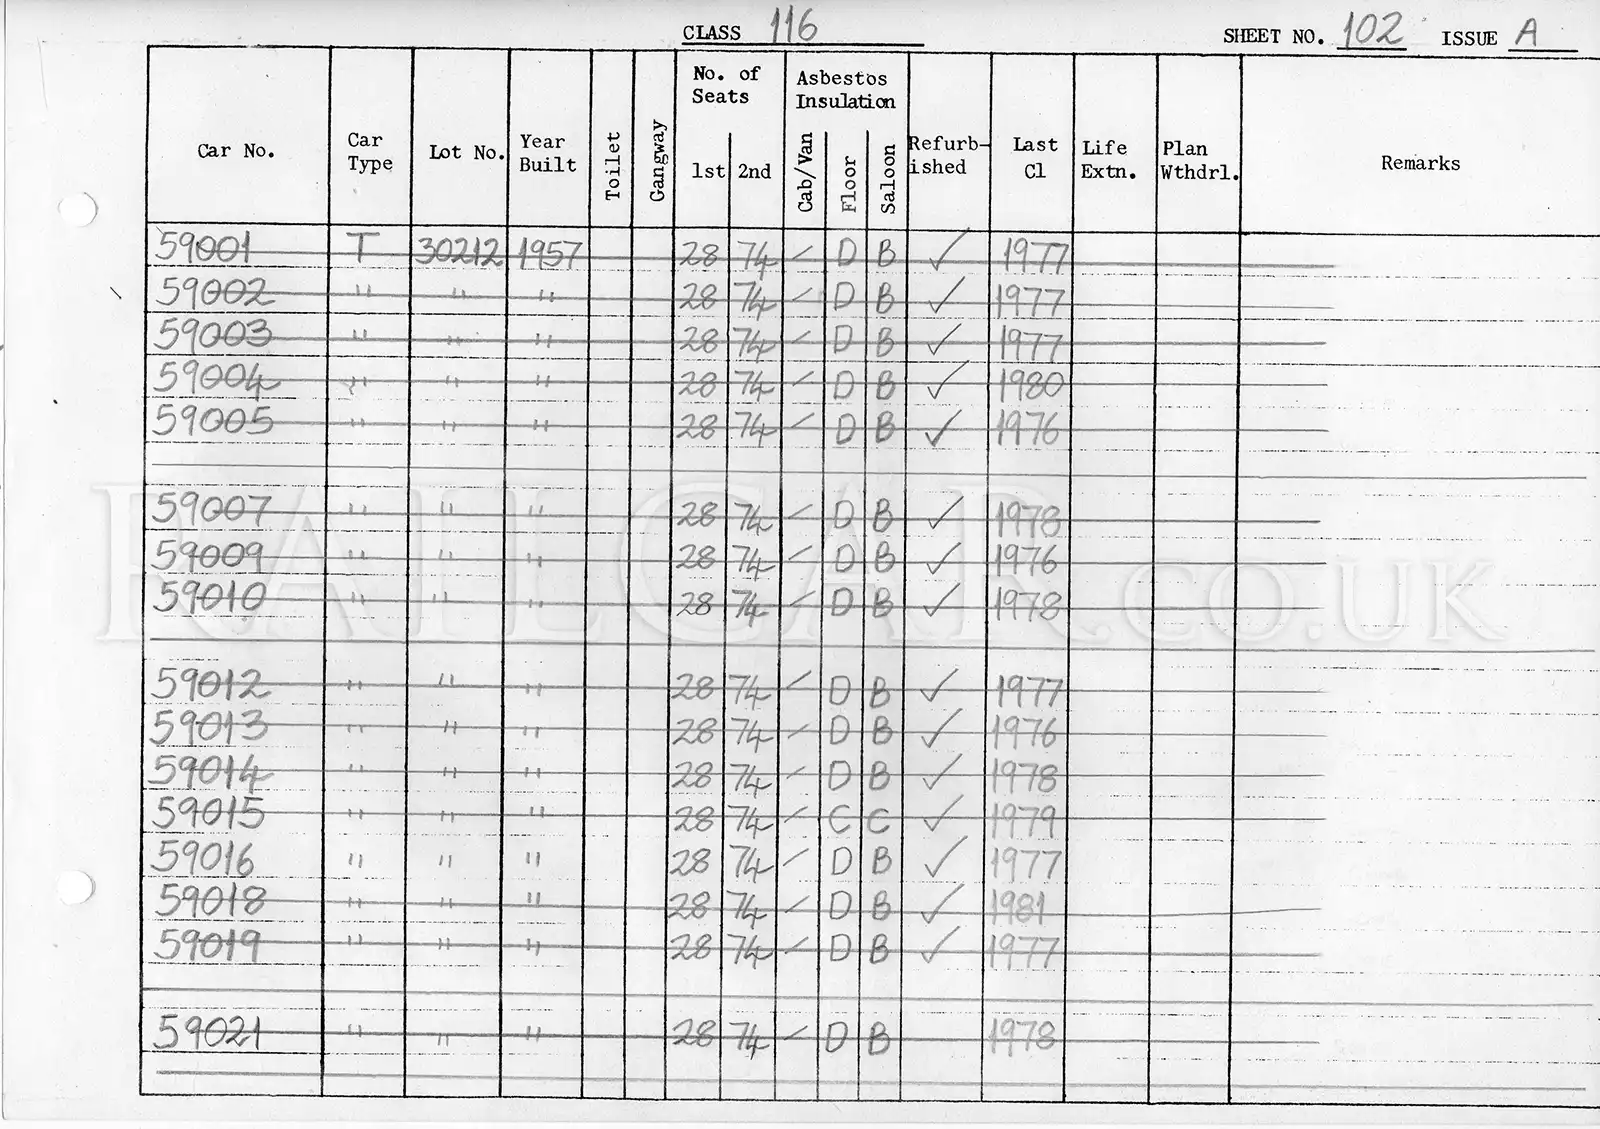 CLASS 116 SHEET NO. 102 ISSUE A
Car No. Car Type Lot No. Year Built Toilet Gangway No. of Seats 1st 2nd Asbestos Insulation Cab/Van Floor Saloon Refurb-ished Last Cl Life Extn. Plan Wthdrl. Remarks
59001 T 30212 1957 28 74 – D B ✓ 1977
59002 " " " 28 74 – D B ✓ 1977
59003 " " " 28 74 – D B ✓ 1977
59004 " " " 28 74 – D B ✓ 1980
59005 " " " 28 74 – D B ✓ 1976
59007 " " " 28 74 – D B ✓ 1978
59009 " " " 28 74 – D B ✓ 1976
59010 " " " 28 74 – D B ✓ 1978
59012 " " " 28 74 – D B ✓ 1977
59013 " " " 28 74 – D B ✓ 1976
59014 " " " 28 74 – D B ✓ 1978
59015 " " " 28 74 – C C ✓ 1979
59016 " " " 28 74 – D B ✓ 1977
59018 " " " 28 74 – D B ✓ 1981
59019 " " " 28 74 – D B ✓ 1977
59021 " " " 28 74 – D B 1978
RAILCAR.CO.UK